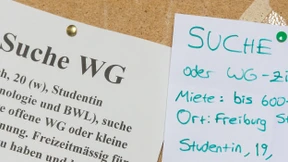 Suche WG
ch, 20 (w), Studentin
nologie und BWL), suche
e offene WG oder kleine
nung. Freizeitmässig für
zu haben und
SUCHE
oder WG-Zi
Miete: bis 600
Ort: Freiburg St
Studentin, 19,